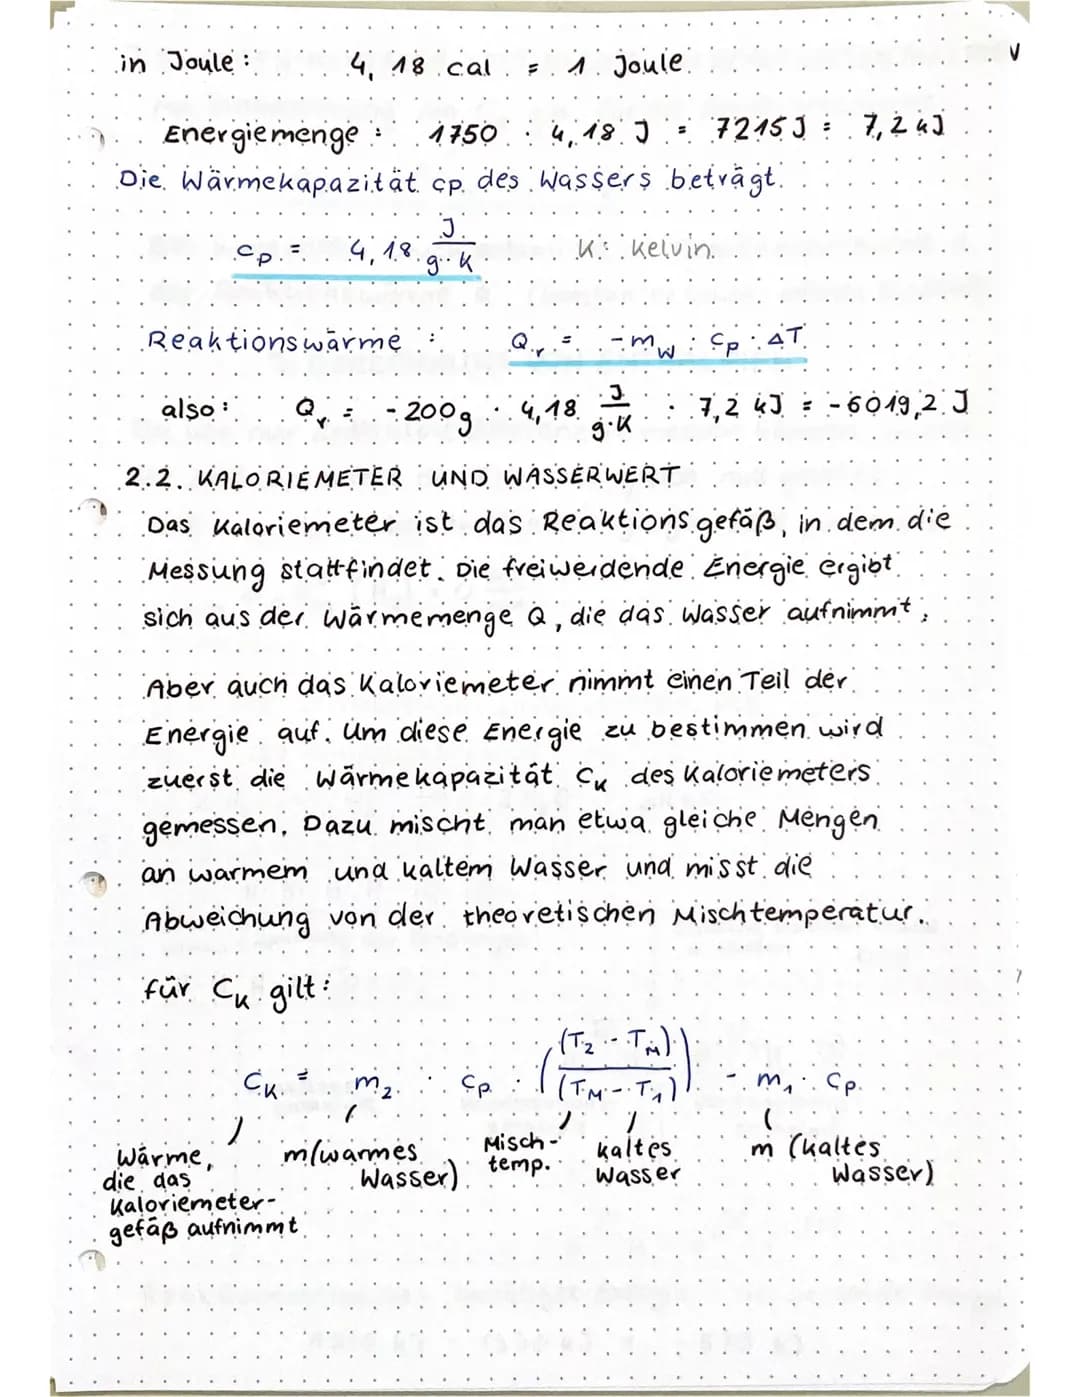 in Joule: 4,18 cal = 1 Joule
Energiemenge: 1750 · 4,18 J = 7215 J = 7,2 kJ
Die Wärmekapazität cp des Wassers beträgt
cp = 4,18 J/(g·K) K: Kelvin
Reaktionswärme: Qr = -mw · cp · ΔT
also: Qr = -200g · 4,18 J/(g·K) · 7,2 kJ = -6019,2 J
2.2. KALORIEMETER UND WASSERWERT
Das Kaloriemeter ist das Reaktionsgefäß, in dem die
Messung stattfindet. Die freiwerdende Energie ergibt
sich aus der Wärmemenge Q, die das Wasser aufnimmt,
Aber auch das Kaloriemeter nimmt einen Teil der
Energie auf. Um diese Energie zu bestimmen wird
zuerst die Wärmekapazität CK des Kaloriemeters
gemessen. Dazu mischt man etwa gleiche Mengen
an warmem und kaltem Wasser und misst die
Abweichung von der theoretischen Mischtemperatur.
für CK gilt:
CK = m2 · cp · ((T2 - TM)/(TM - T1)) - m1 · cp
Wärme, die das Kaloriemeter-gefäß aufnimmt
m(warmes Wasser)
Misch-temp.
kaltes Wasser
m (kaltes Wasser)